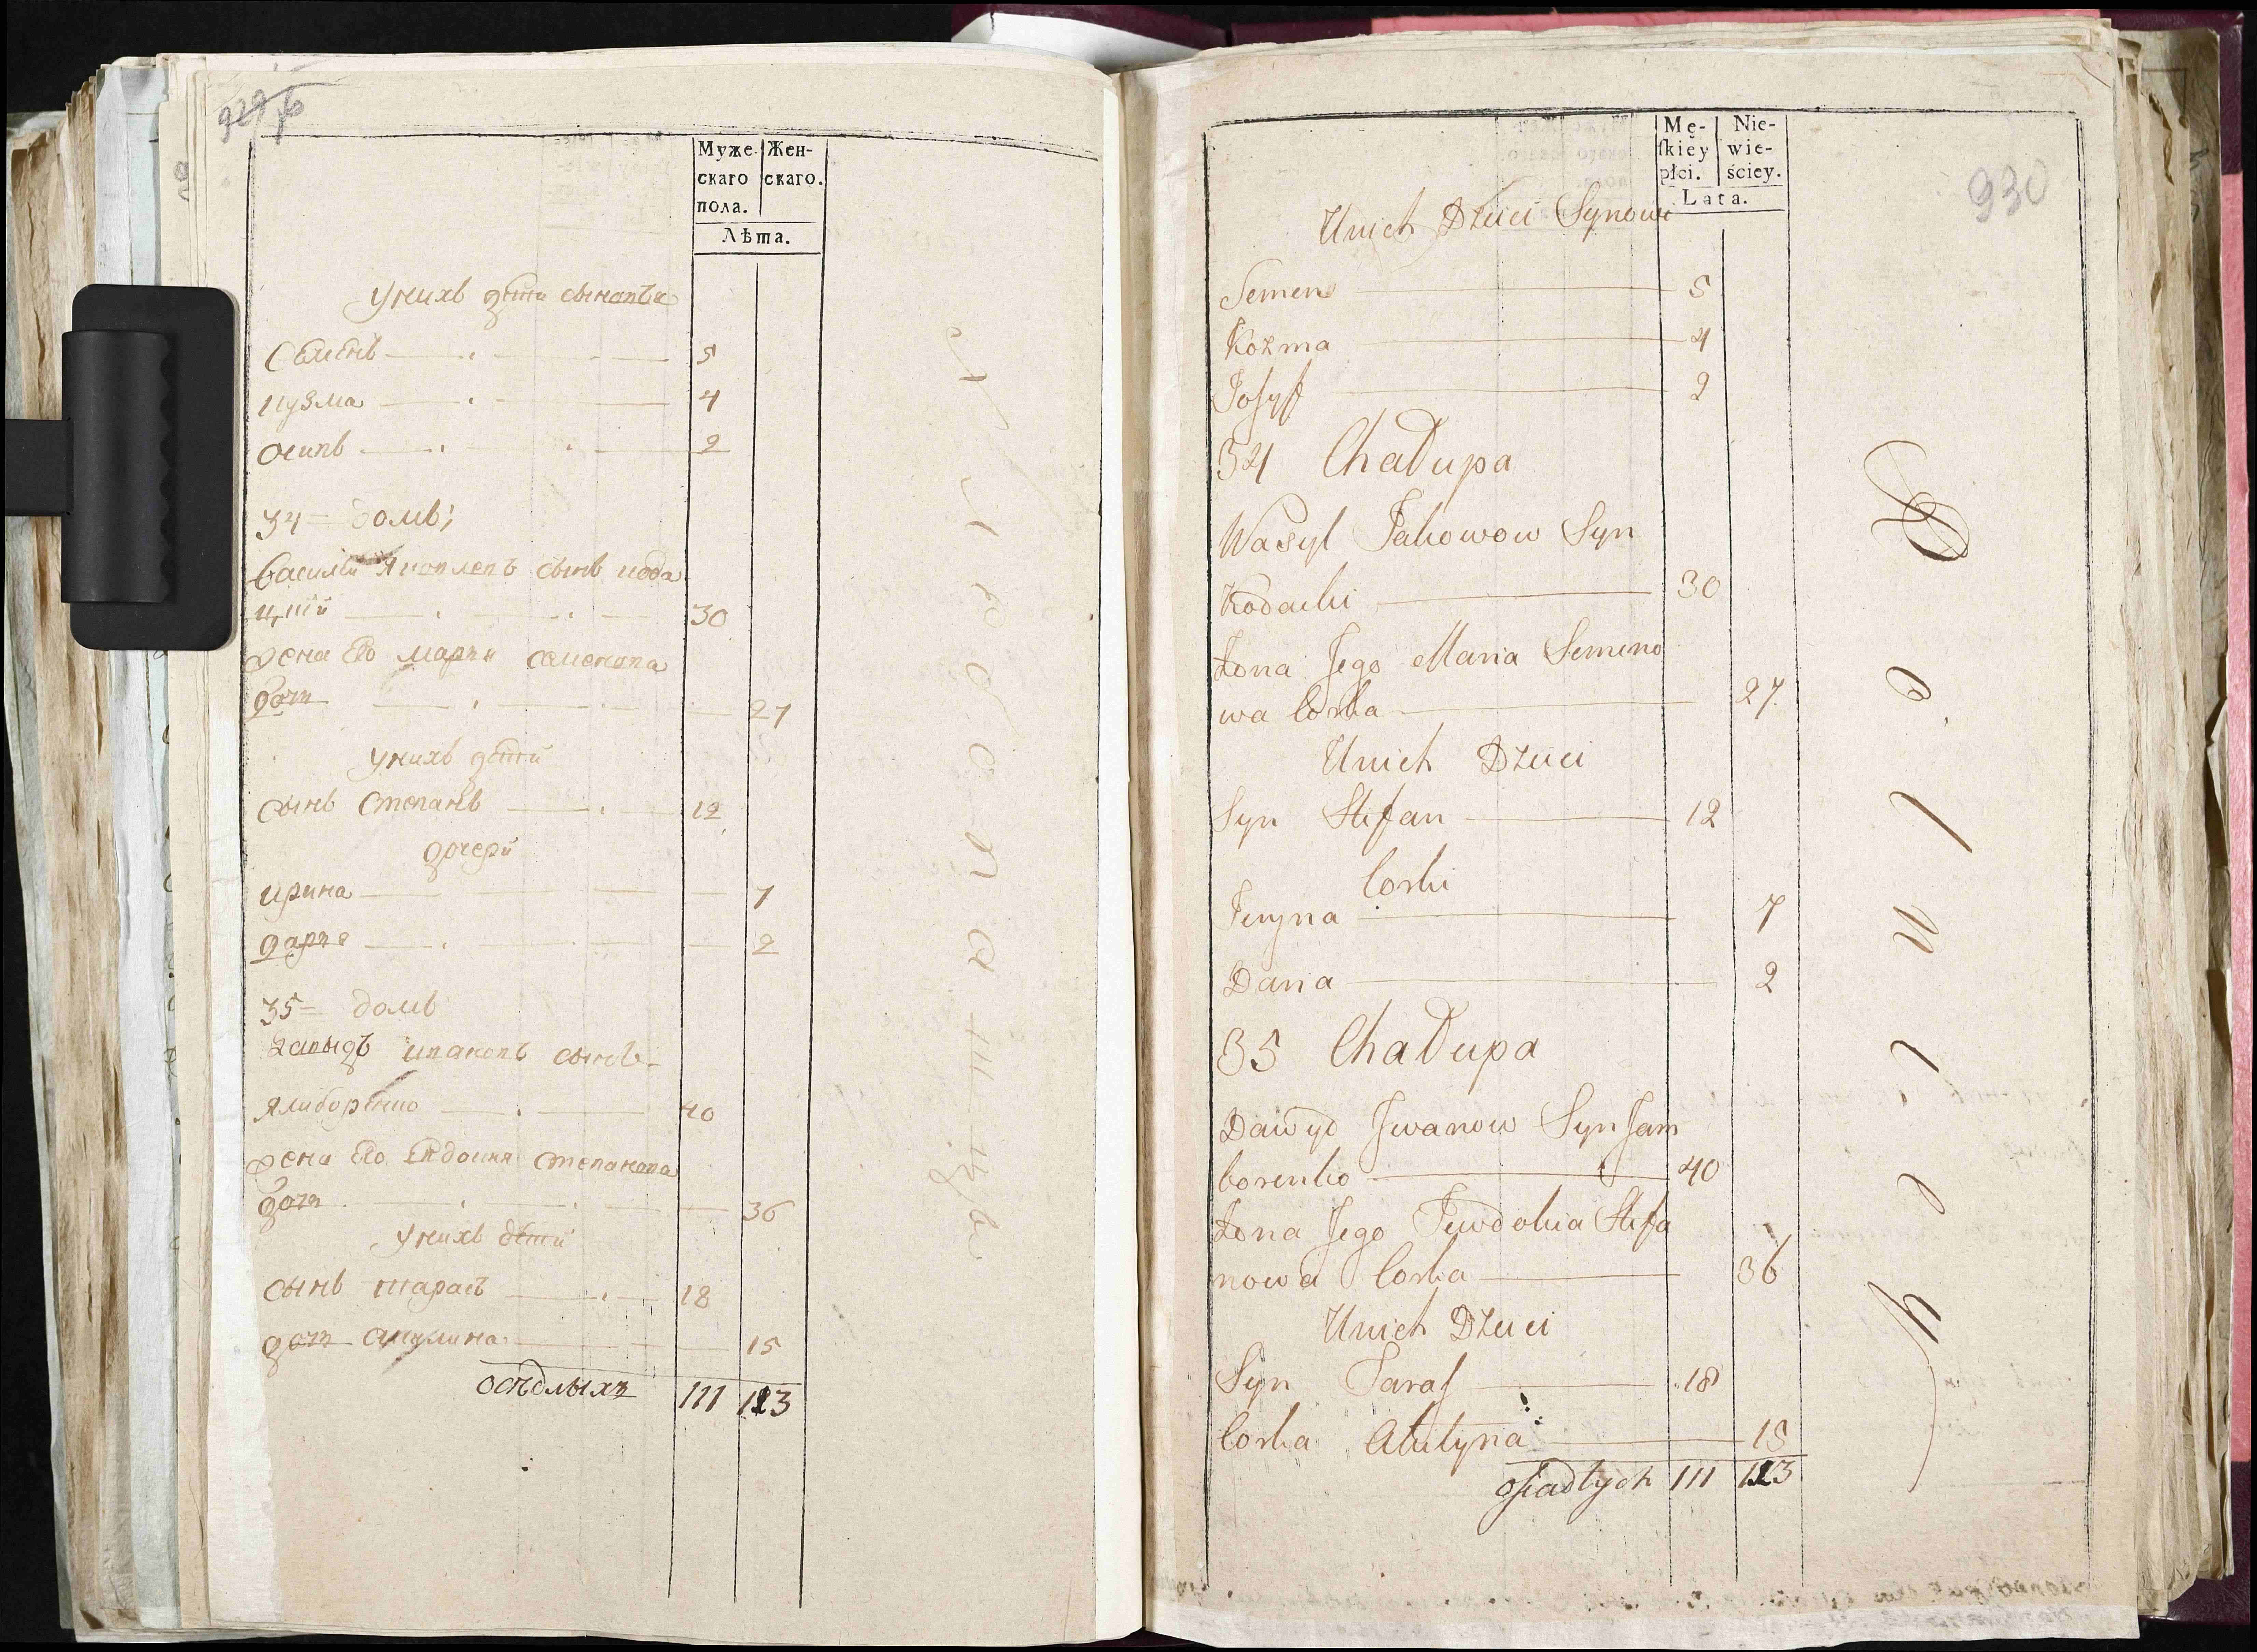 929 об
Муже- Жен-
скаго скаго.
пола.
Лѣта.
У нихъ дѣти сыновья
Семенъ 5
Кузма 4
Осипъ 2
34 = домъ;
Василій Яковлевъ сынъ кода
цкій 30
жена Его марья семенова
дочь 27
У нихъ дѣти
сынъ Степанъ 12
дочери
ирина 7
дарья 2
35 = домъ
давыдъ ивановъ сынъ
Ямборенко 40
жена Его Евдокия степанова
дочь 36
У нихъ дѣти
сынъ тарасъ 18
дочь акулина 15
осѣдлыхъ 111 123
930
Mę- Nie-
ſkiey wie-
płci. ściey.
Lata.
Unich Dzieci Synowie
Semen 5
Kozma 4
Josyf 2
34 Chałupa
Wasyl Jakowow Syn
Kodacki 30
Żona Jego Maria Semeno
wa Corka 27
Unich Dzieci
Syn Stefan 12
Corki
Jeryna 7
Daria 2
35 Chałupa
Dawyd Jwanow Syn Jam
borenko 40
Żona Jego Jewdokia Stefa
nowa Corka 36
Unich Dzieci
Syn Taras 18
Corka Akulyna 15
osiadłych 111 123